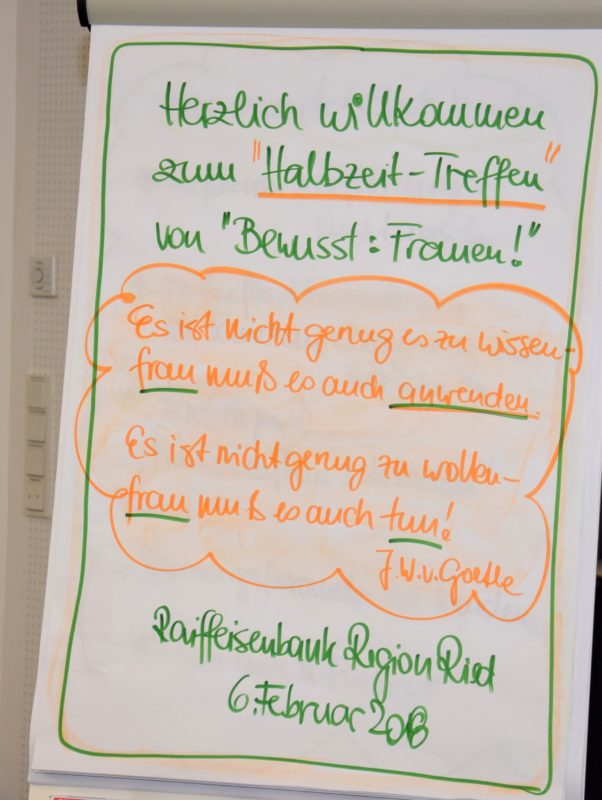 Herzlich willkommen
zum "Halbzeit-Treffen"
von "Bewusst: Frauen!"
Es ist nicht genug es zu wissen-
frau muß es auch anwenden.
Es ist nicht genug zu wollen-
frau muß es auch tun!
J.W.v.Goethe
Raiffeisenbank Region Ried
6. Februar